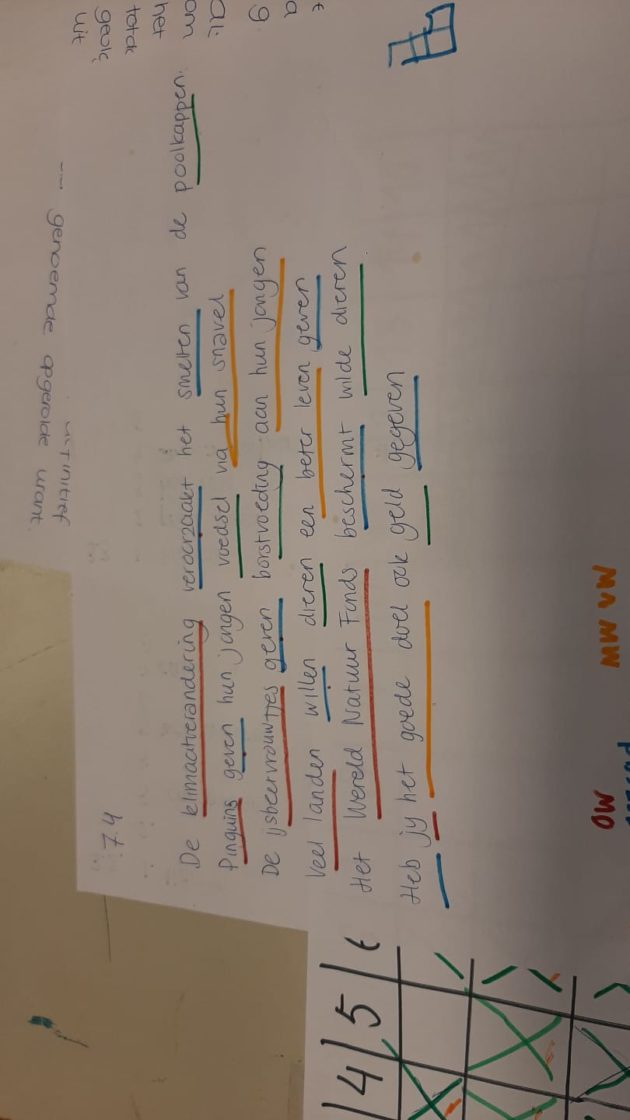 7.4
De klimaatverandering veroorzaakt het smelten van de poolkappen.
Pinguins geven hun jongen voedsel via hun snavel
De ijsbeervrouwtjes geven borstvoeding aan hun jongen
Veel landen willen dieren een beter leven geven
Het Wereld Natuur Fonds beschermt wilde dieren
Heb jij het goede doel ook geld gegeven
genoemde afgeronde want.
OW
MW
4 5
om
het
uit